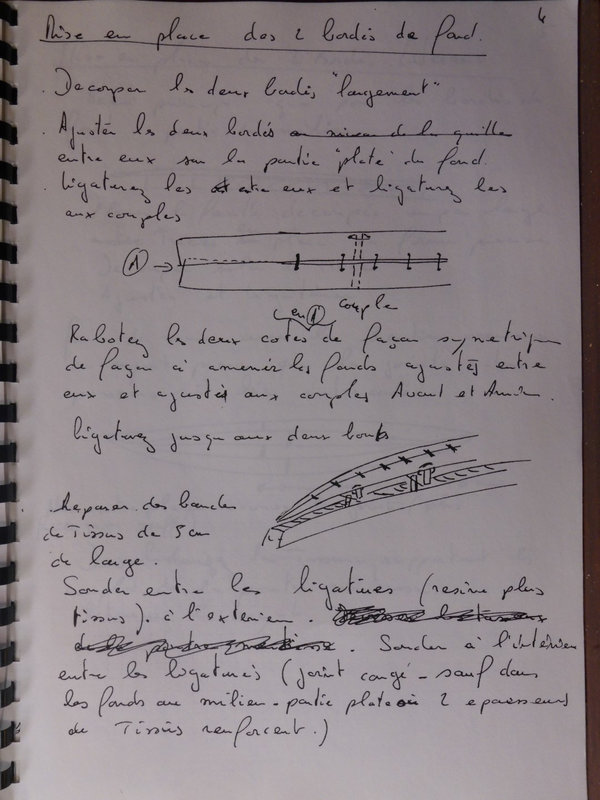 4
Mise en place des 2 bordés de fond.
. Decouper les deux bordés "largement"
. Ajuster les deux bordés au niveau de la quille
entre eux sur la partie "plate" du fond.
. Ligaturez les entre eux et ligaturez les
aux couples
A
couple
en A
Rabotez les deux cotés de façon symetrique
de façon à amener les fonds ajustés entre
eux et ajustés aux couples Avant et Arrière.
Ligaturez jusqu'aux deux bouts
. Preparer des bandes
de Tissus de 5 cm
de large.
Souder entre les ligatures (resine plus
tissus). à l'exterieur.
. Souder à l'intérieur
entre les ligatures (joint congé - sauf dans
les fonds au milieu - partie plate où 2 epaisseurs
de Tissus renforcent.)